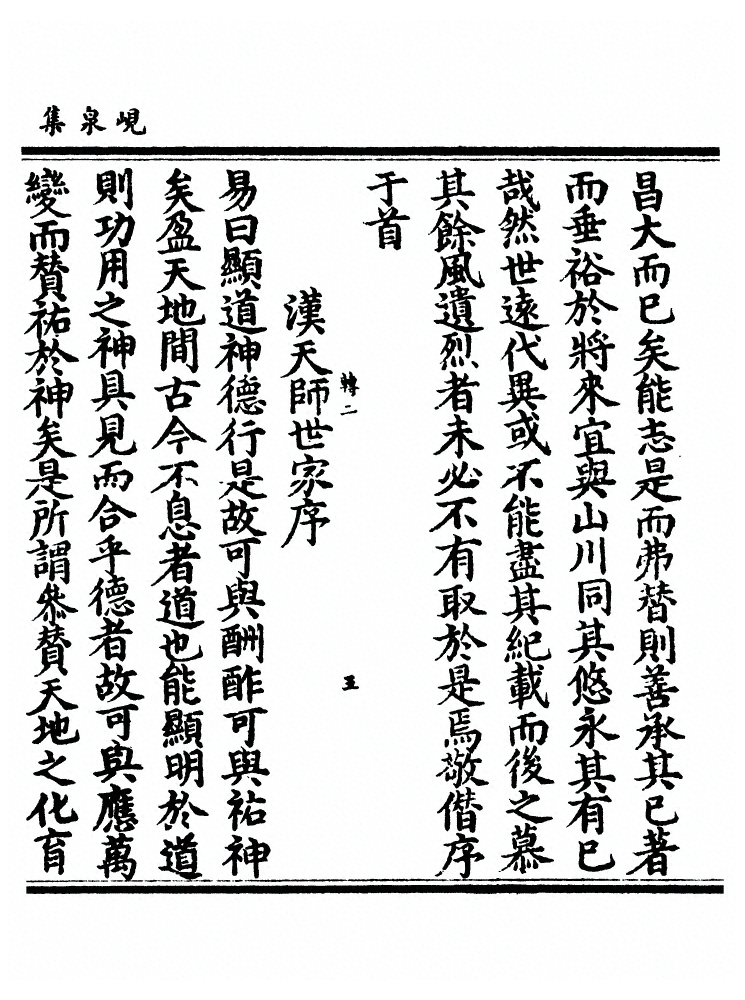 峴泉集
昌大而已矣能志是而弗替則善承其已著
而垂裕於將來宜與山川同其悠永其有已
哉然世遠代異或不能盡其紀載而後之慕
其餘風遺烈者未必不有取於是焉敬僭序
于首
轉二
五
漢天師世家序
易曰顯道神德行是故可與酬酢可與祐神
矣盈天地間古今不息者道也能顯明於道
則功用之神具見而合乎德者故可與應萬
變而賛祐於神矣是所謂叅賛天地之化育